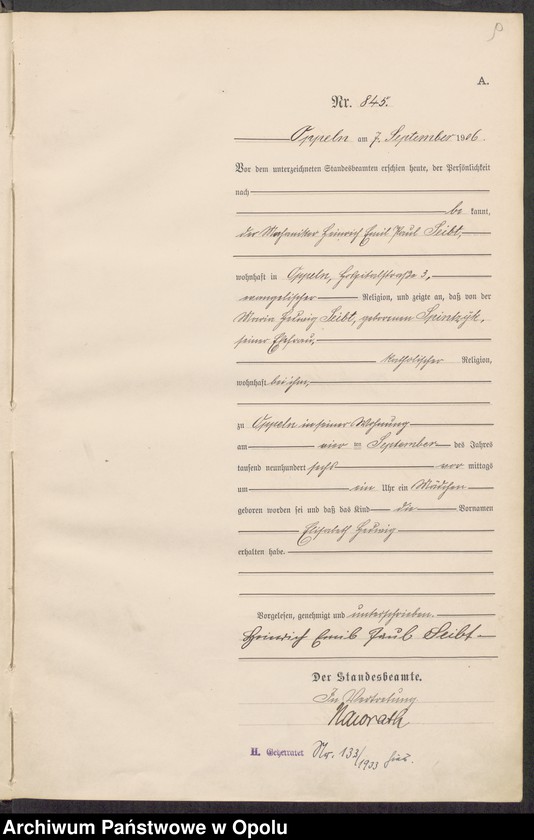 A.
Nr. 845.
Oppeln am 7. September 1906.
Vor dem unterzeichneten Standesbeamten erschien heute, der Persönlichkeit
nach
be kannt,
der Mechaniker Heinrich Emil Paul Seibt,
wohnhaft in Oppeln, Hospitalstraße 3,
evangelischer Religion, und zeigte an, daß von der
Maria Hedwig Seibt, geborenen
seiner Ehefrau,
katholischer Religion,
wohnhaft bei ihm,
zu Oppeln in seiner Wohnung
am vier ten September des Jahres
tausend neunhundert sechs vor mittags
um ein Uhr ein Mädchen
geboren worden sei und daß das Kind die Vornamen
Elisabeth Hedwig
erhalten habe.
Vorgelesen, genehmigt und unterschrieben.
Heinrich Emil Paul Seibt
Der Standesbeamte.
In Vertretung
Nawrath
H. Geheiratet Nr. 133/1933
Archiwum Państwowe w Opolu